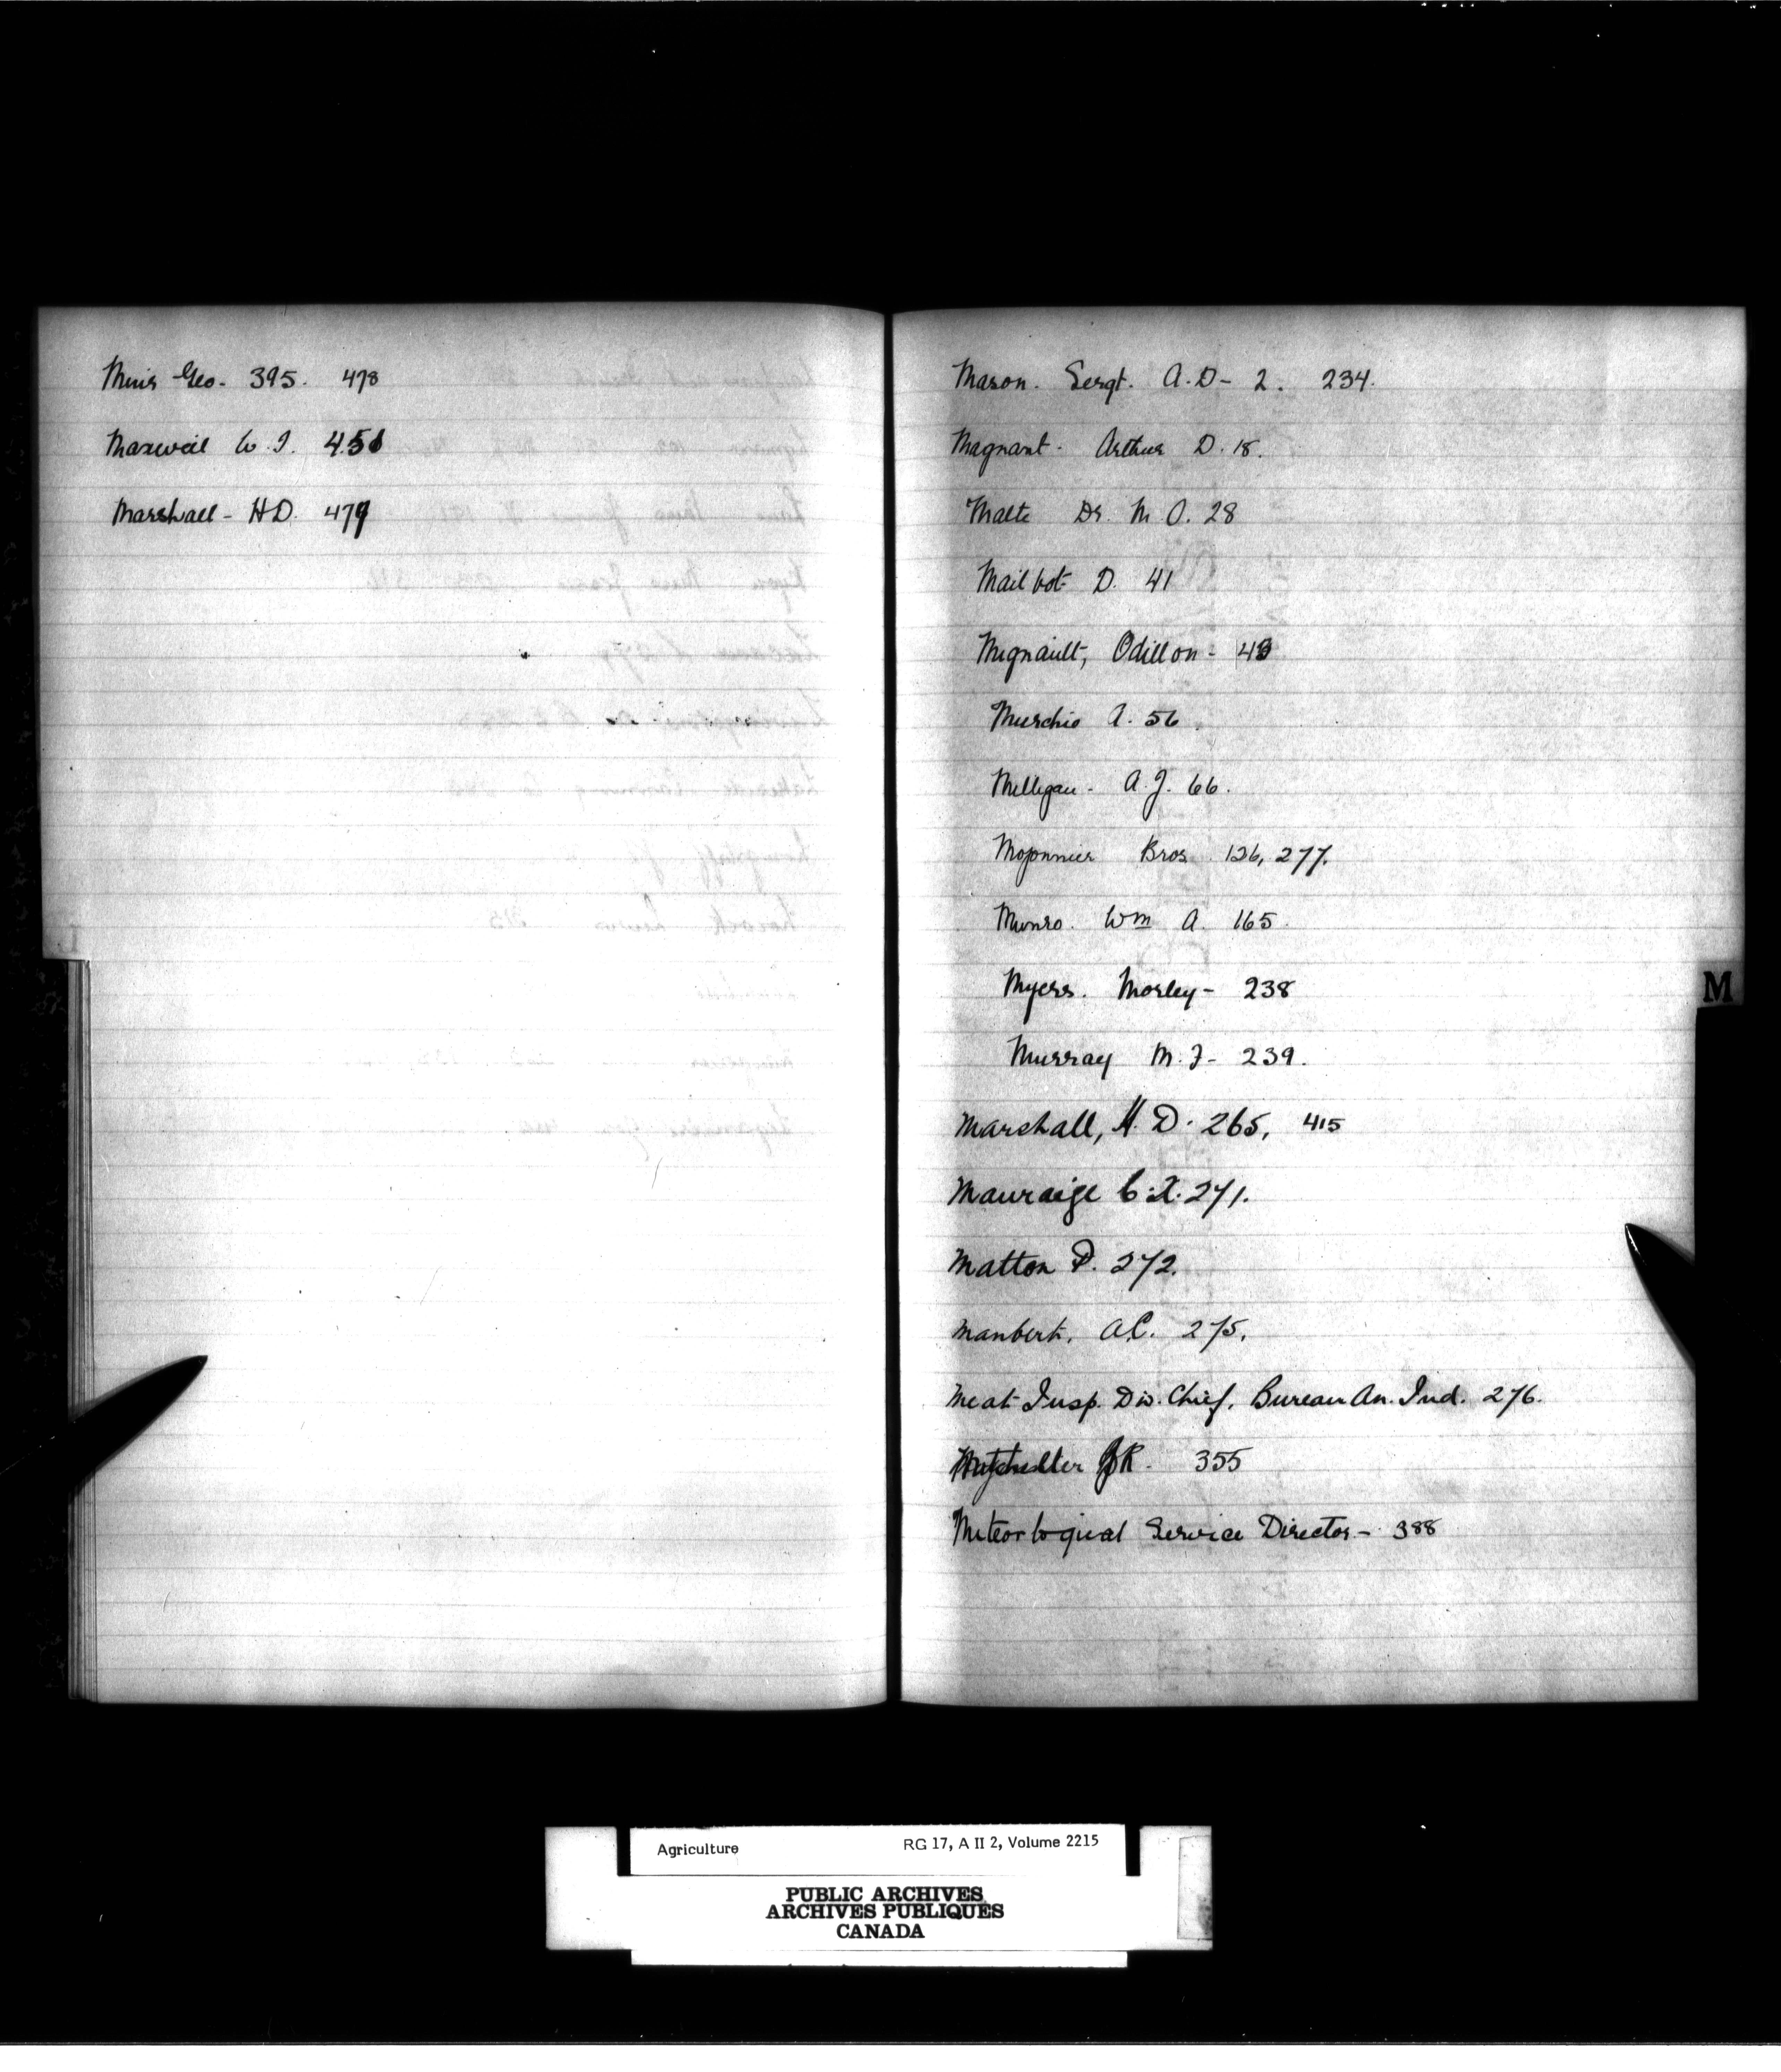 Muir Geo. 395. 478
Maxwell W. J. 451
Marshall - H D. 479
Mason. Sergt. A. D - 2. 234.
Magnant - Arthur D. 18.
Malte Dr. M. O. 28
Mailbot D. 41
Mignault, Odillon - 43
Murchie A. 56.
Milligan - A. J. 66.
Mojonnier Bros. 126, 277.
Munro. Wm A. 165.
Myers. Morley - 238
Murray M. J - 239.
Marshall, H. D. 265, 415
Mauraige C. X. 271.
Matton P. 272.
Manbert. A.C. 275.
Meat Insp. Div. Chief, Bureau An. Ind. 276.
R. 355
Meteorlogical Service Director - 388
M
Agriculture RG 17, A II 2, Volume 2215
PUBLIC ARCHIVES
ARCHIVES PUBLIQUES
CANADA